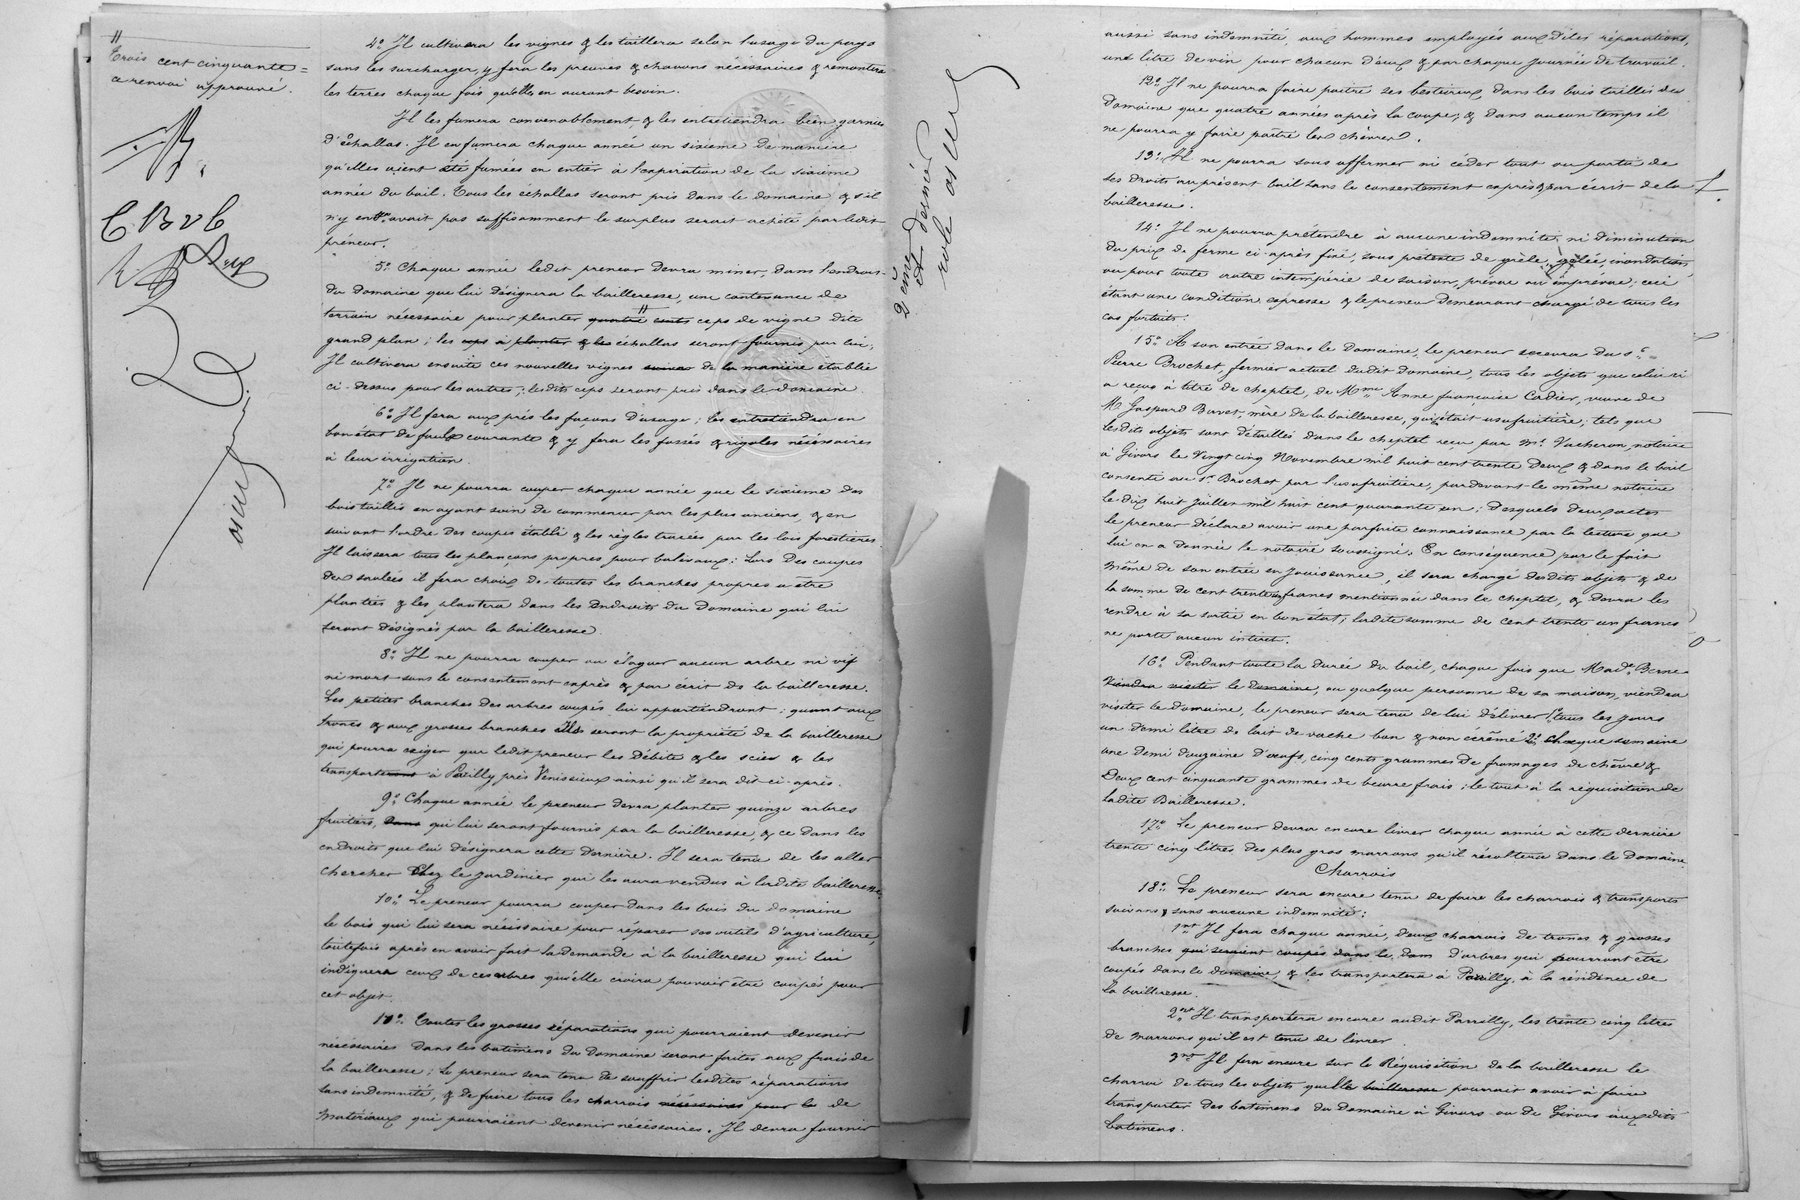 "
Trois cent cinquante =
a renvoi approuvé.
C B v C
4º. Il cultivera les vignes & les taillera selon l'usage du pays
sans les surcharger, y fera les preuves & chavons nécessaires & remontera
les terres chaque fois qu'elles en auront besoin.
Il les fumera convenablement, & les entretiendra bien garnies
d'échallas. Il en fumera chaque année un sixième de manière
qu'elles aient été fumées en entier à l'expiration de la sixième
année du bail. Tous les échallas seront pris dans le domaine & s'il
n'y en avait pas suffisamment le surplus serait acheté par ledit
préneur.
5º. Chaque année ledit preneur devra miner, dans l'endroit
du domaine que lui désignera la bailleresse, une contenance de
terrain nécessaire pour planter quatre cents " ceps de vigne dite
grand plan ; les ceps à planter & les échallas seront fournis par lui,
Il cultivera ensuite ces nouvelles vignes suivan de la manière établie
ci-dessus pour les autres ; lesdits ceps seront pris dans le domaine.
6º. Il fera aux prés les façons d'usage ; les entretiendra en
bon état de faulx courante & y fera les fossés & rigoles nécéssaires
à leur irrigation.
7º. Il ne pourra couper chaque année que le sixième des
bois taillis en ayant soin de commencer par les plus anciens, & en
suivant l'ordre des coupes établi & les règles tracées par les lois forestières.
Il laissera tous les plançons propres pour balivaux ; Lors des coupes
des saulées il fera choix de toutes les branches propres à être
plantées & les plantera dans les endroits du domaine qui lui
seront désignés par la bailleresse.
8º. Il ne pourra couper ou élaguer aucun arbre ni vif
ni mort sans le consentement exprès & par écrit de la bailleresse.
Les petites branches des arbres coupés lui appartiendront ; quant aux
troncs & aux grosses branches ils seront la propriété de la bailleresse
qui pourra exiger que ledit preneur les débite & les scie & les
transporteront à Parilly près Vénissieux ainsi qu'il sera dit ci-après.
9º. Chaque année le preneur devra planter quinze arbres
fruitiers, dans qui lui seront fournis par la bailleresse, & ce dans les
endroits que lui désignera cette dernière. Il sera tenu de les aller
chercher chez le jardinier qui les aura vendus à ladite bailleresse.
10º. Le preneur pourra couper dans les bois du domaine
le bois qui lui sera nécéssaire pour réparer ses outils d'agriculture,
toutefois après en avoir fait la demande à la bailleresse qui lui
indiquera ceux de ces arbres qu'elle croira pouvoir être coupés pour
cet objet.
11º. Toutes les grosses réparations qui pourraient devenir
nécéssaires dans les batimens du domaine seront faites aux frais de
la bailleresse ; le preneur sera tenu de souffrir lesdites réparations
sans indemnité, & de faire tous les charrois nécéssaires pour la de
matériaux qui pourraient devenir nécéssaires. Il devra fournir
2ème & dernier
role
aussi sans indemnité, aux hommes employés aux dites réparations,
un litre de vin pour chacun d'eux & par chaque journée de travail.
12º. Il ne pourra faire paître ses bestiaux dans les bois taillis du
domaine que quatre années après la coupe, & dans aucun temps il
ne pourra y faire paître les chèvres.
13º. Il ne pourra sous affermer ni céder tout ou partie de
ses droits au présent bail sans le consentement exprès & par écrit de la
bailleresse.
14º. Il ne pourra prétendre à aucune indemnité ni diminution
du prix de ferme ci-après fixé, sous prétexte de grêle, gelée, inondation,
ou pour toute autre intempérie de saison, prévue ou imprévue ; ceci
étant une condition expresse & le preneur demeurant chargé de tous les
cas fortuits.
15º. A son entrée dans le domaine, le preneur recevra du sr.
Pierre Brochet, fermier actuel dudit domaine, tous les objets que celui-ci
a reçus à titre de cheptel, de Mme Anne françoise Cadier, veuve de
M. Gaspard Buvet, mère de la bailleresse, qui était usufruitière ; tels que
lesdits objets sont détaillés dans le cheptel reçu par Me. Vacheron, notaire
à Givors le vingt cinq Novembre mil huit cent trente deux & dans le bail
consenti au sr. Brochet par l'usufruitière, pardevant le même notaire
le dix huit juillet mil huit cent quarante un ; desquels deux actes
le preneur déclare avoir une parfaite connaissance par la lecture que
lui en a donnée le notaire soussigné. En conséquence par le fait
même de son entrée en jouissance, il sera chargé desdits objets & de
la somme de cent trente un francs mentionnée dans le cheptel, & devra les
rendre à sa sortie en bon état ; ladite somme de cent trente un francs
ne porte aucun intérêt.
16º. Pendant toute la durée du bail, chaque fois que Made. Berne
viendra visiter le domaine, ou quelque personne de sa maison, viendra
visiter le domaine, le preneur sera tenu de lui délivrer 1º. tous les jours
un demi litre de lait de vache bon & non écrêmé 2º. chaque semaine
une demi douzaine d'œufs, cinq cents grammes de fromages de chèvre &
deux cent cinquante grammes de beurre frais ; le tout à la réquisition de
ladite Bailleresse.
17º. Le preneur devra encore livrer chaque année à cette dernière
trente cinq litres des plus gros marrons qu'il récoltera dans le domaine.
Charrois
18º. Le preneur sera encore tenu de faire les charrois & transports
suivans, sans aucune indemnité :
1ent Il fera chaque année, deux charrois de troncs & grosses
branches qui seraient coupés dans le dom d'arbres qui pourront être
coupés dans le domaine, & les transportera à Parilly, à la résidence de
la bailleresse.
2ent Il transportera encore audit Parrilly, les trente cinq litres
de marrons qu'il est tenu de livrer.
3ent Il fera encore sur la Réquisition de la bailleresse le
charroi de tous les objets que la bailleresse pourrait avoir à faire
transporter des batimens du domaine à Givors ou de Givors auxdits
batimens.